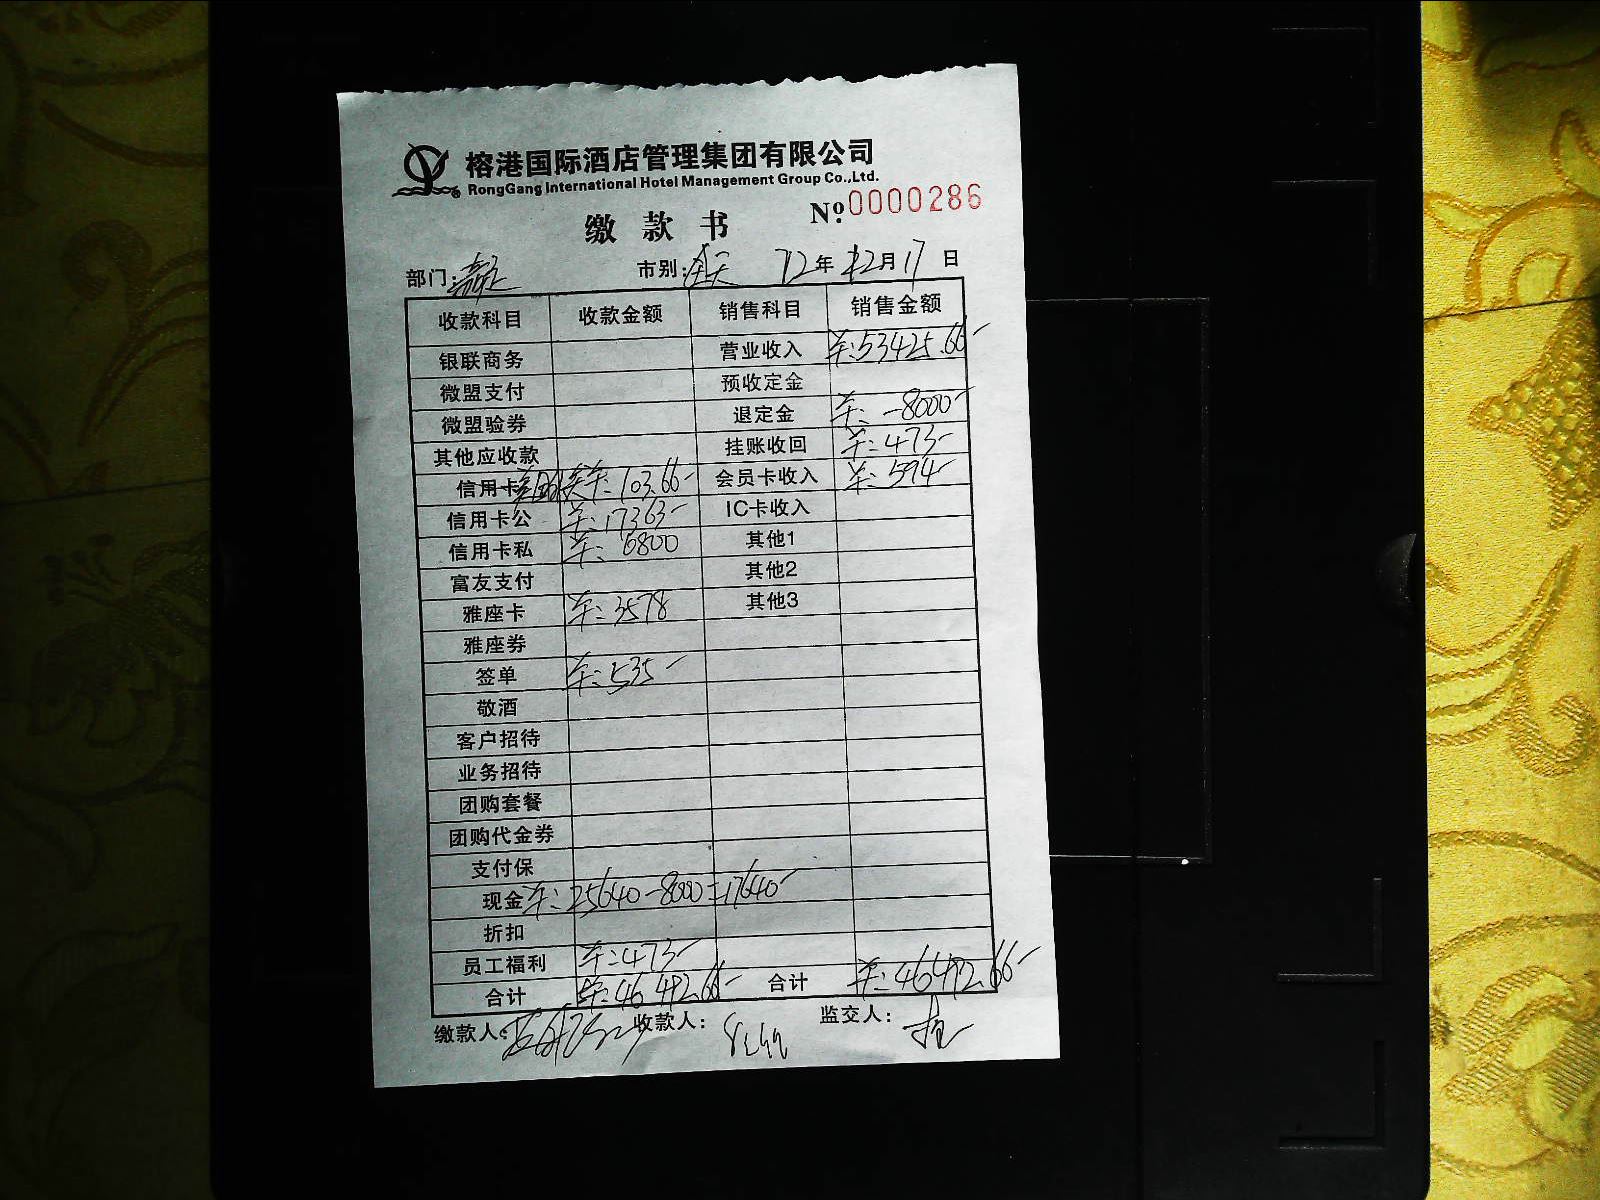 榕港国际酒店管理集团有限公司
RongGang International Hotel Management Group Co.,Ltd.
缴款书 Nº 0000286
部门: 市别:全天 12年12月17日
收款科目 收款金额 销售科目 销售金额
银联商务 营业收入 53425.66
微盟支付 预收定金
微盟验券 退定金 -8000
其他应收款 挂账收回 473
信用卡 103.66 会员卡收入 594
信用卡公 17363 IC卡收入
信用卡私 6800 其他1
富友支付 其他2
雅座卡 3578 其他3
雅座券
签单 535
敬酒
客户招待
业务招待
团购套餐
团购代金券
支付保
现金 25640-8000=17640
折扣
员工福利 473
合计 46492.66 合计 46492.66
缴款人: 收款人: 监交人: